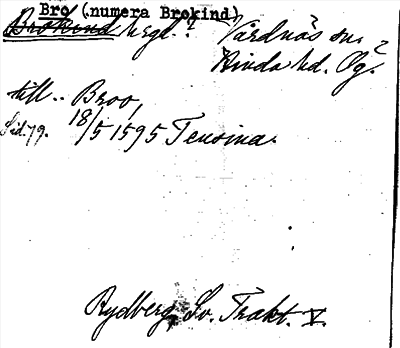 Bro (numera Brokind)
Brokind hrgd.? Vårdnäs sn.?
Kinda hd. Ög.
till.. Broo,
Sid. 79. 18/5 1595 Teusina.
Rydberg, Sv. Trakt. V.